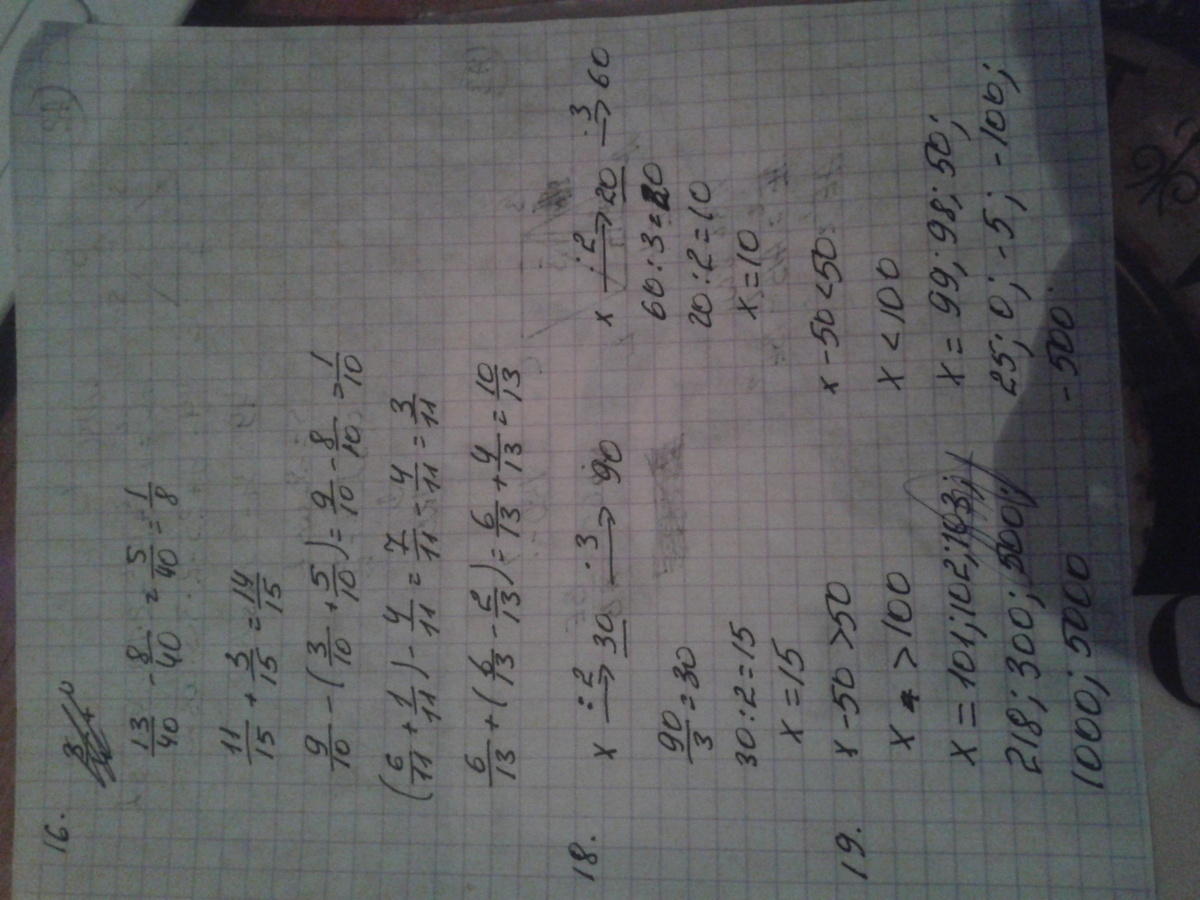 16.
13/40 - 8/40 = 5/40 = 1/8
11/15 + 3/15 = 14/15
9/10 - (3/10 + 5/10) = 9/10 - 8/10 = 1/10
(6/11 + 1/11) - 4/11 = 7/11 - 4/11 = 3/11
6/13 + (6/13 - 2/13) = 6/13 + 4/13 = 10/13
18. x :2→ 30 ·3→ 90
90/3 = 30
30:2=15
x=15
x :2→ 20 ·3→ 60
60:3=20
20:2=10
x=10
19. x-50>50
x > 100
x = 101; 102; 103;
218; 300; 500;
1000; 5000
x-50<50
x < 100
x = 99; 98; 50;
25; 0; -5; -100;
-500